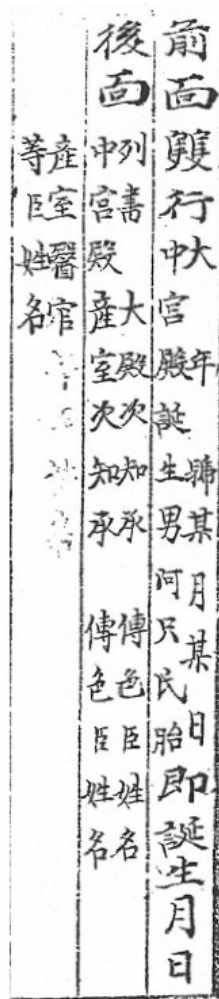 前面雙行
大年號某月某日
中宮殿誕生男阿只氏胎
即誕生月日
後面
列書大殿次知承傳色臣姓名
中宮殿産室次知承傳色臣姓名
産室醫官
等臣姓名